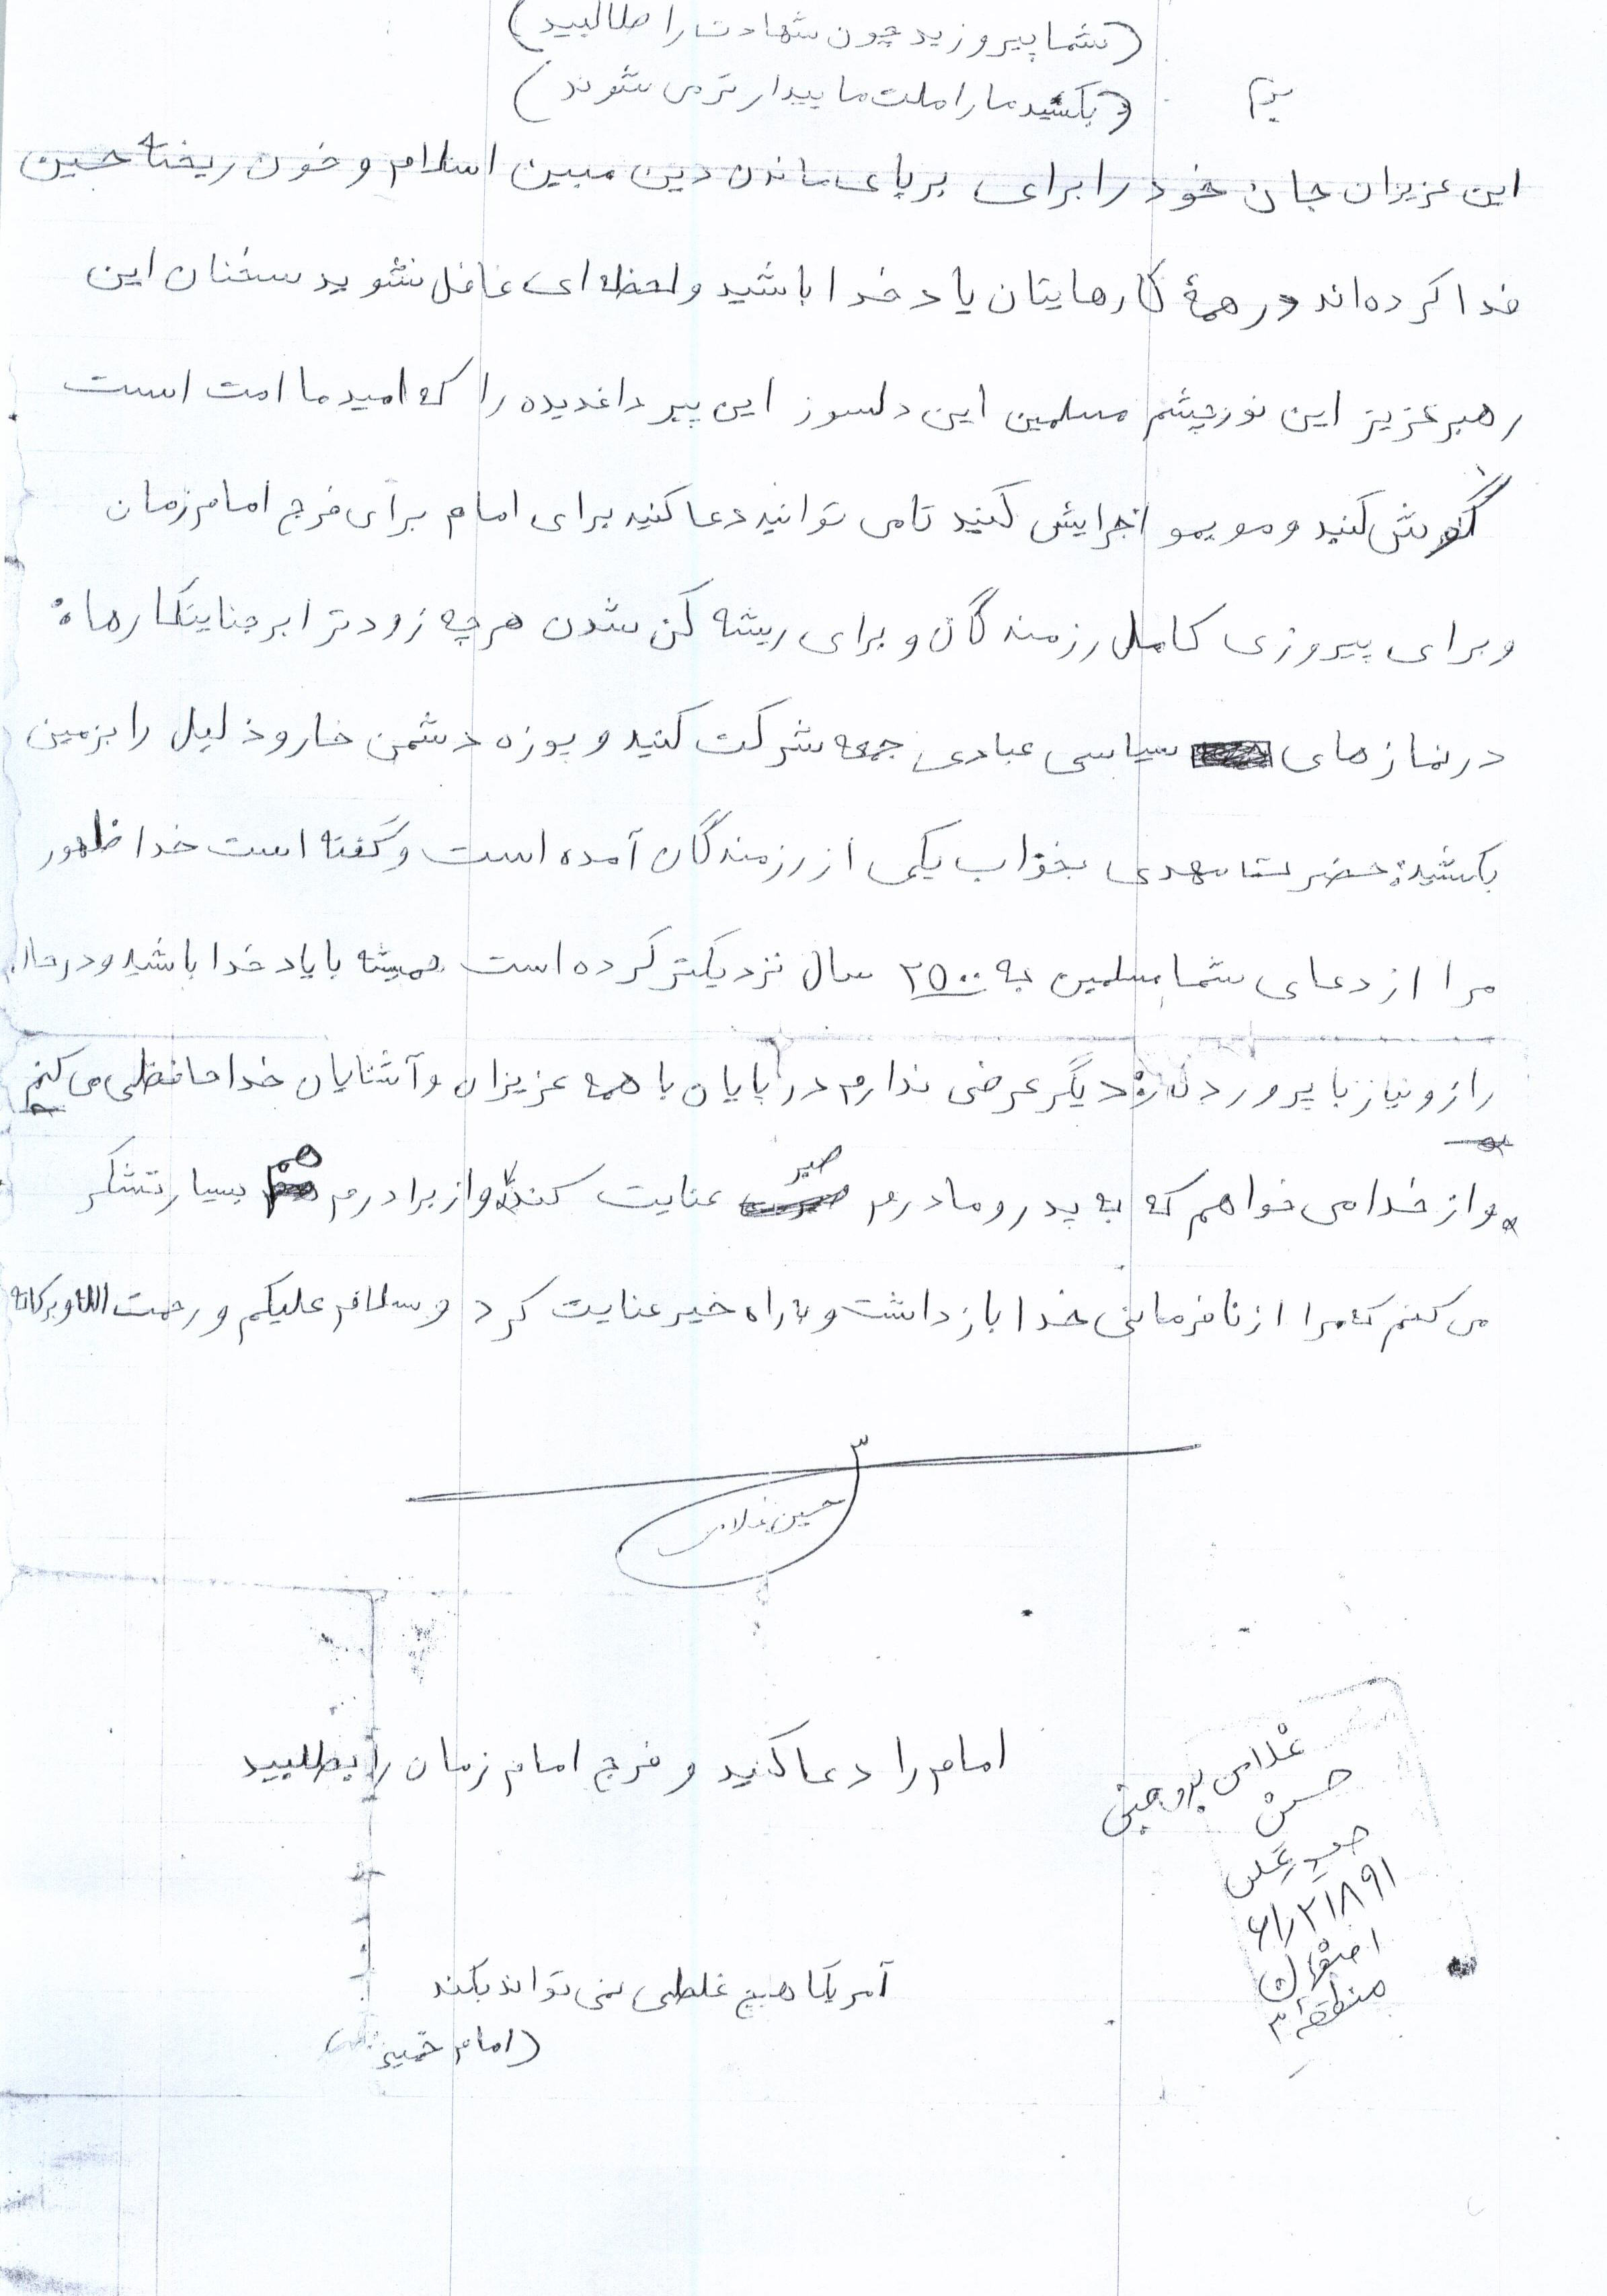 (شما پیروزید چون شهادت را طالبید)
(بکشید ما را ملت ما بیدارتر می شوند)
این عزیزان جان خود را برای برپای ماندن دین مبین اسلام و خون ریخته حسین
فدا کرده‌اند در همهٔ کارهایتان یاد خدا باشید و لحظه ای غافل نشوید سخنان این
رهبر عزیز این نور چشم مسلمین این دلسوز این پیر داغدیده را که امید ما امت است
گوش کنید و مو بمو اجرایش کنید تا می توانید دعا کنید برای امام برای فرج امام زمان
و برای پیروزی کامل رزمندگان و برای ریشه کن شدن هر چه زودتر ابرجنایتکارها
در نمازهای سیاسی عبادی جمعه شرکت کنید و پوزه دشمن خار و ذلیل را بزمین
بکشید حضرت مهدی بخواب یکی از رزمندگان آمده است و گفته است خدا ظهور
مرا از دعای شما مسلمین به ۲۵۰۰ سال نزدیکتر کرده است همیشه با یاد خدا باشید و در حال
راز و نیاز با پروردن دیگر عرضی ندارم در پایان با همه عزیزان و آشنایان خداحافظی می کنم
و از خدا می خواهم که به پدر و مادرم صبر عنایت کند و از برادرم هم بسیار تشکر
می کنم که مرا از نافرمانی خدا باز داشت و به راه خیر عنایت کرد و سلام علیکم و رحمت الله و برکاته
حسین غلامی
امام را دعا کنید و فرج امام زمان را بطلبید
غلامی بروجنی
حسن
حیدرعلی
۶۱٫۲۱۸۹۱
اصفهان
منطقه ۲
آمریکا هیچ غلطی نمی تواند بکند
(امام خمینی)